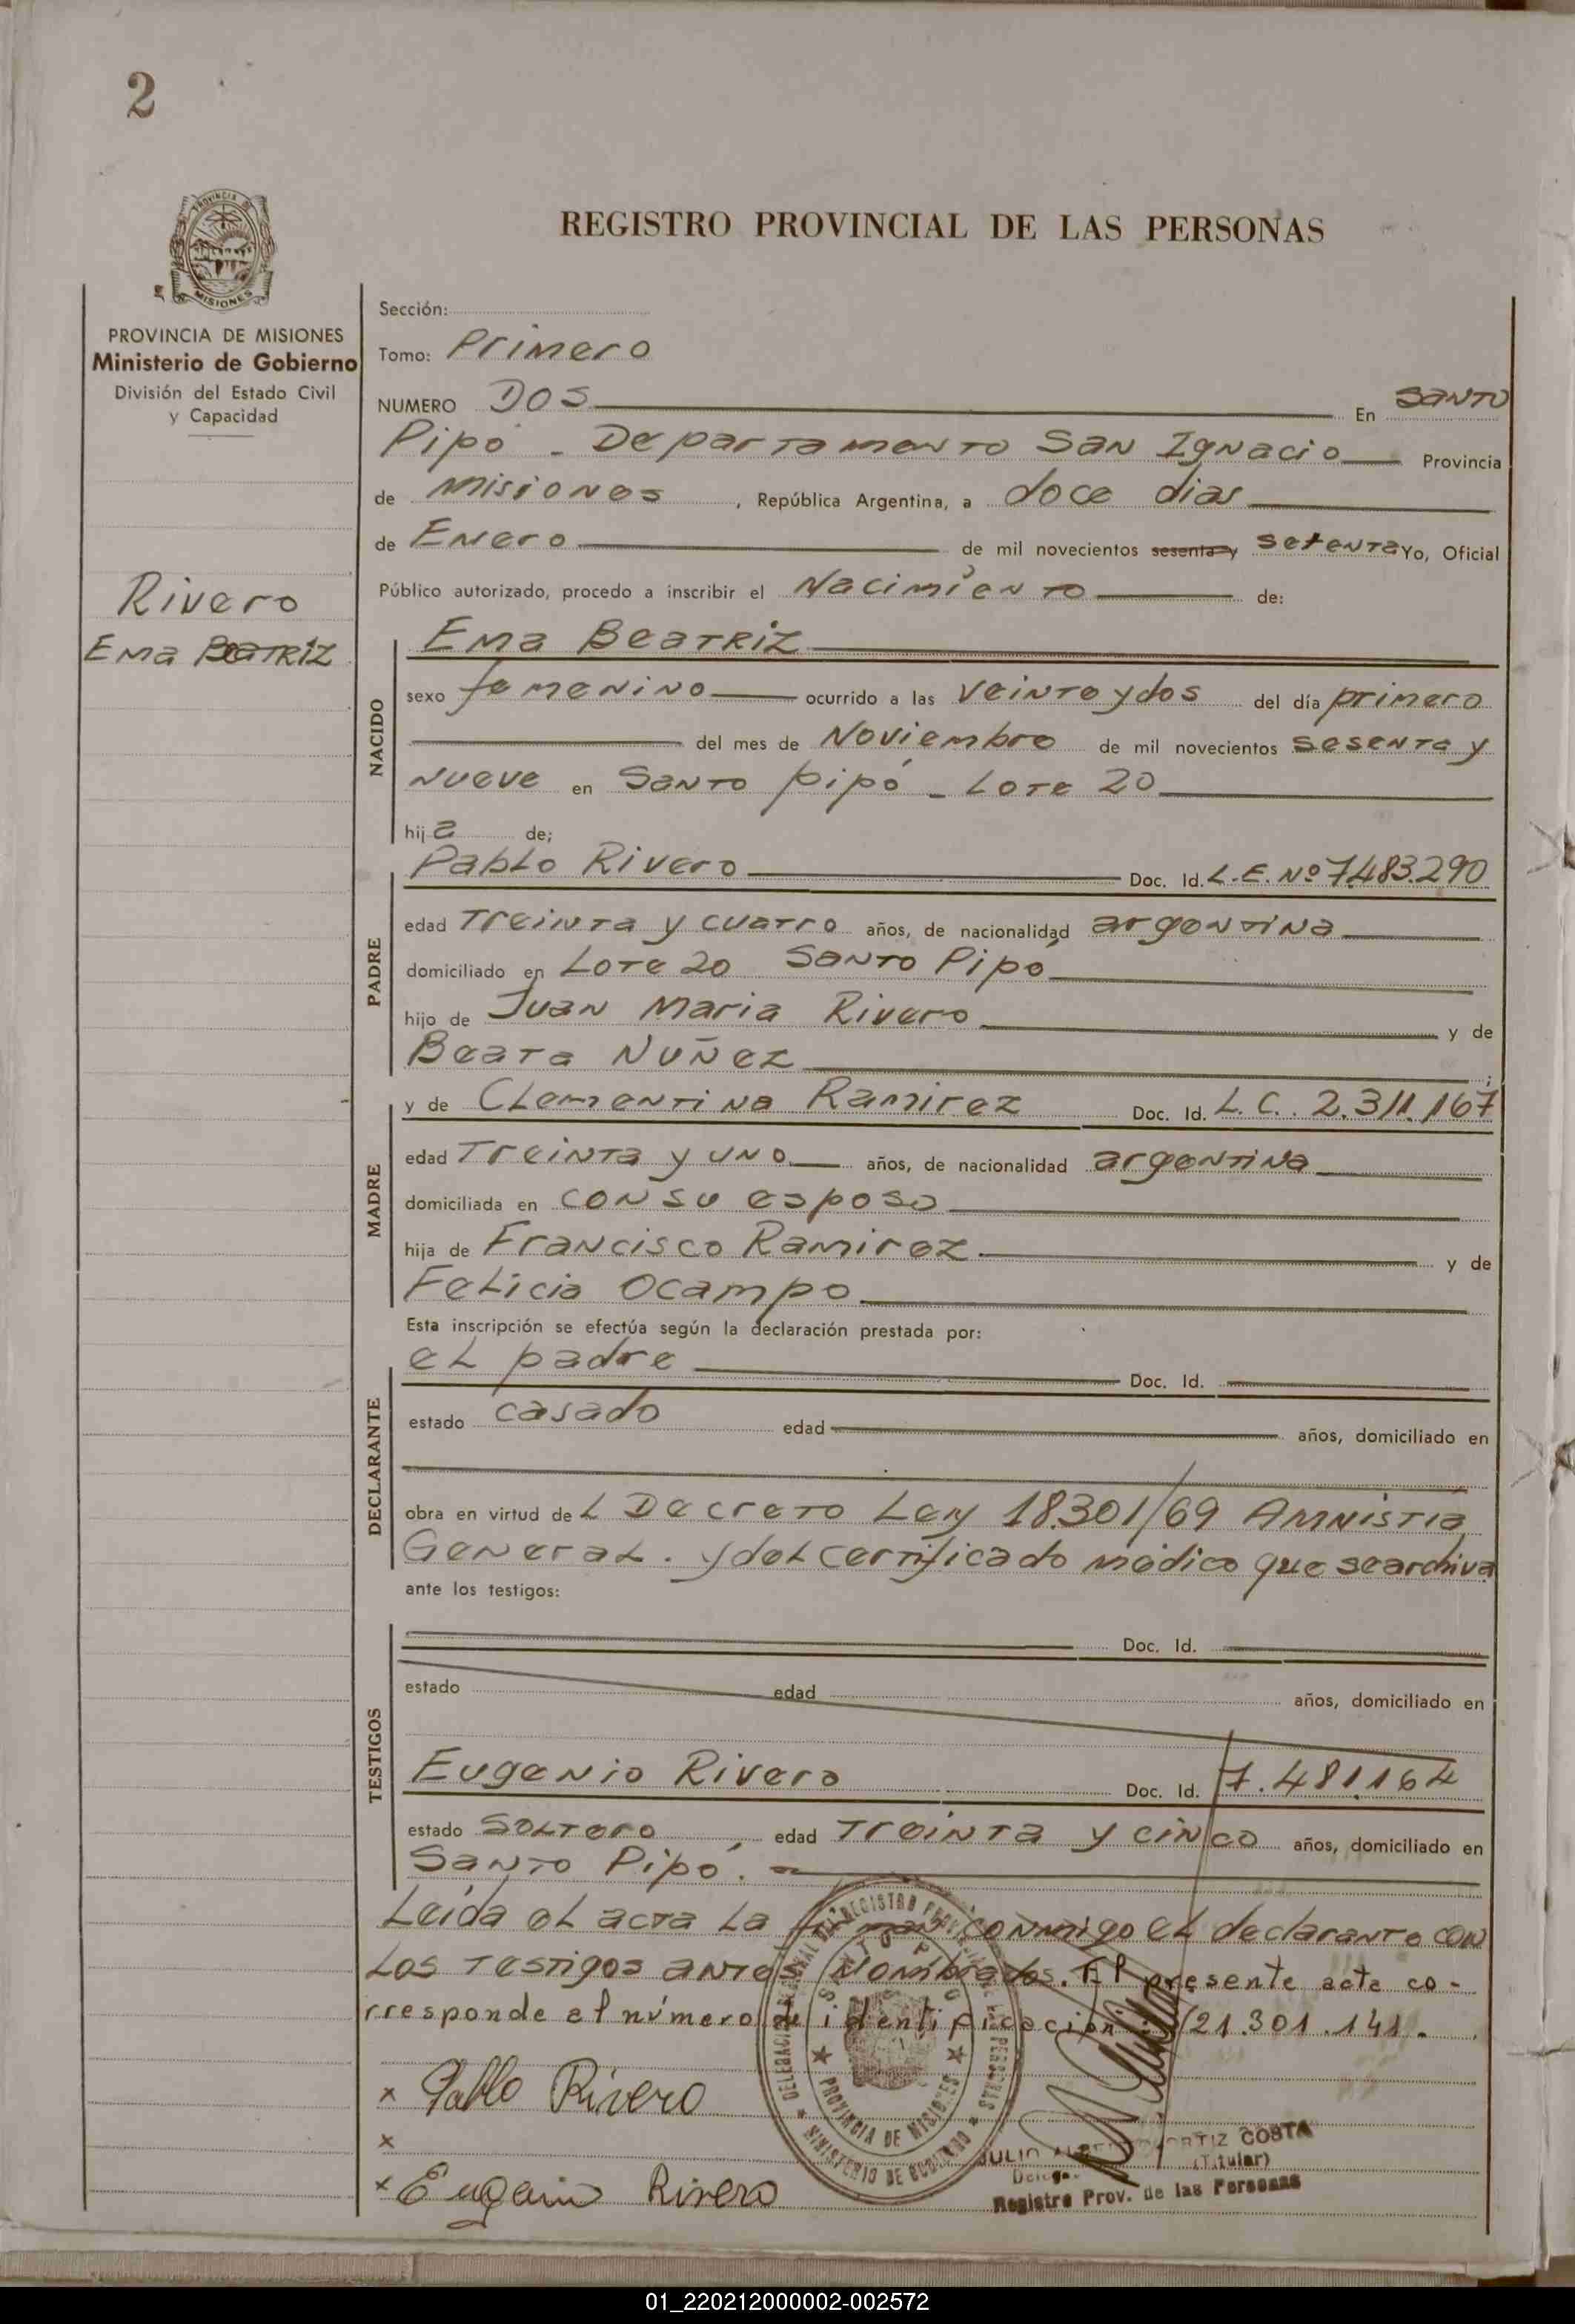 2
PROVINCIA DE
MISIONES
PROVINCIA DE MISIONES
Ministerio de Gobierno
División del Estado Civil
y Capacidad
Rivero
Ema Beatriz
REGISTRO PROVINCIAL DE LAS PERSONAS
Sección:
Tomo: Primero
NUMERO DOS En Santo
Pipó - Departamento San Ignacio Provincia
de Misiones, República Argentina, a doce dias
de Enero de mil novecientos sesenta y setenta Yo, Oficial
Público autorizado, procedo a inscribir el Nacimiento de:
NACIDO
Ema Beatriz
sexo femenino ocurrido a las veinte y dos del día primero
del mes de Noviembre de mil novecientos sesenta y
nueve en Santo Pipó - Lote 20
hija de;
PADRE
Pablo Rivero Doc. Id. L.E. Nº 7.483.290
edad treinta y cuatro años, de nacionalidad argentina
domiciliado en Lote 20 Santo Pipó
hijo de Juan Maria Rivero y de
Beata Nuñez ;
MADRE
y de Clementina Ramirez Doc. Id. L.C. 2.311.167
edad treinta y uno años, de nacionalidad argentina
domiciliada en con su esposo
hija de Francisco Ramirez y de
Felicia Ocampo
Esta inscripción se efectúa según la declaración prestada por:
DECLARANTE
el padre Doc. Id.
estado casado edad años, domiciliado en
obra en virtud del Decreto Ley 18.301/69 Amnistía
General. y del certificado médico que se archiva
ante los testigos:
TESTIGOS
Doc. Id.
estado edad años, domiciliado en
Eugenio Rivero Doc. Id. 7.481.164
estado soltero, edad treinta y cinco años, domiciliado en
Santo Pipó. -
Leida el acta la firman conmigo el declarante con
los testigos antes nombrados. El presente acta co-
rresponde al número de identificación: 21.301.141.
x Pablo Rivero
x
x Eugenio Rivero
SANTO PIPO
PROVINCIA DE MISIONES
MINISTERIO DE GOBIERNO
JULIO ORTIZ COSTA
(Titular)
Registro Prov. de las Personas
01_220212000002-002572